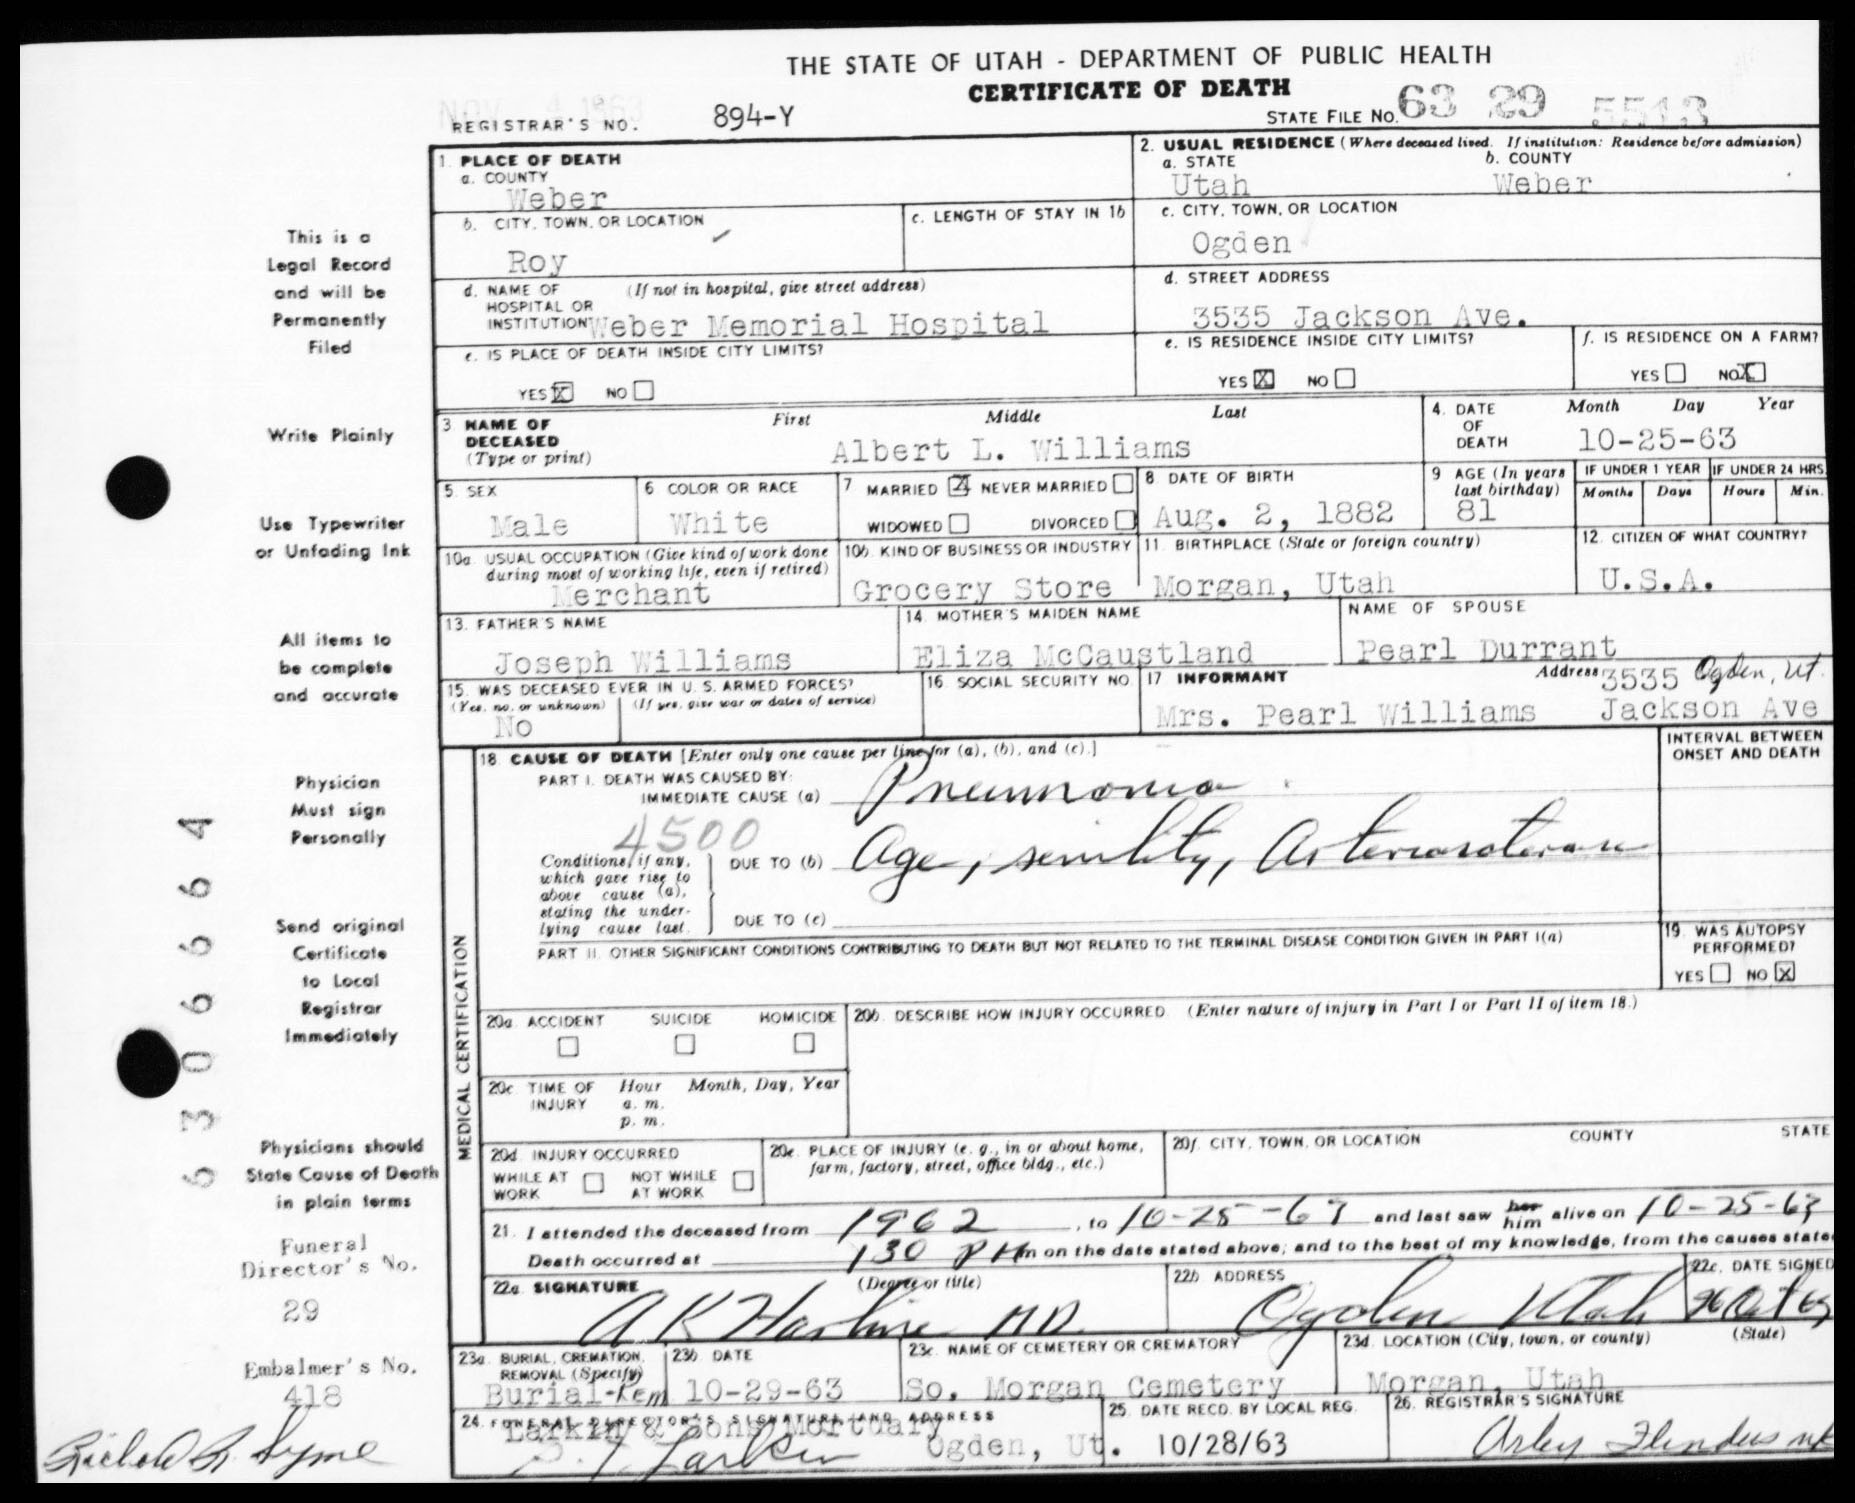 THE STATE OF UTAH - DEPARTMENT OF PUBLIC HEALTH
CERTIFICATE OF DEATH
NOV 4 1963
REGISTRAR'S NO. 894-Y
STATE FILE NO. 63 29 5513
1. PLACE OF DEATH
a. COUNTY
Weber
2. USUAL RESIDENCE (Where deceased lived. If institution: Residence before admission)
a. STATE b. COUNTY
Utah Weber
b. CITY, TOWN, OR LOCATION
Roy
c. LENGTH OF STAY IN 1b
c. CITY, TOWN, OR LOCATION
Ogden
d. NAME OF HOSPITAL OR INSTITUTION (If not in hospital, give street address)
Weber Memorial Hospital
d. STREET ADDRESS
3535 Jackson Ave.
e. IS PLACE OF DEATH INSIDE CITY LIMITS?
YES X NO
e. IS RESIDENCE INSIDE CITY LIMITS?
YES X NO
f. IS RESIDENCE ON A FARM?
YES NO X
3. NAME OF DECEASED (Type or print)
First Middle Last
Albert L. Williams
4. DATE OF DEATH Month Day Year
10-25-63
5. SEX
Male
6 COLOR OR RACE
White
7 MARRIED X NEVER MARRIED
WIDOWED DIVORCED
8 DATE OF BIRTH
Aug. 2, 1882
9 AGE (In years last birthday)
81
IF UNDER 1 YEAR
Months Days
IF UNDER 24 HRS.
Hours Min.
10a. USUAL OCCUPATION (Give kind of work done during most of working life, even if retired)
Merchant
10b. KIND OF BUSINESS OR INDUSTRY
Grocery Store
11. BIRTHPLACE (State or foreign country)
Morgan, Utah
12. CITIZEN OF WHAT COUNTRY?
U.S.A.
13. FATHER'S NAME
Joseph Williams
14. MOTHER'S MAIDEN NAME
Eliza McCaustland
NAME OF SPOUSE
Pearl Durrant
15. WAS DECEASED EVER IN U. S. ARMED FORCES?
(Yes, no, or unknown) (If yes, give war or dates of service)
No
16. SOCIAL SECURITY NO.
17 INFORMANT Address
Mrs. Pearl Williams 3535 Jackson Ave Ogden, Ut.
MEDICAL CERTIFICATION
18. CAUSE OF DEATH [Enter only one cause per line for (a), (b), and (c).]
PART I. DEATH WAS CAUSED BY:
IMMEDIATE CAUSE (a) Pneumonia
4500
Conditions, if any, which gave rise to above cause (a), stating the underlying cause last.
DUE TO (b) Age, senility,
DUE TO (c)
INTERVAL BETWEEN ONSET AND DEATH
PART II. OTHER SIGNIFICANT CONDITIONS CONTRIBUTING TO DEATH BUT NOT RELATED TO THE TERMINAL DISEASE CONDITION GIVEN IN PART I(a)
19. WAS AUTOPSY PERFORMED?
YES NO X
20a. ACCIDENT SUICIDE HOMICIDE
20b. DESCRIBE HOW INJURY OCCURRED. (Enter nature of injury in Part I or Part II of item 18.)
20c. TIME OF INJURY Hour Month, Day, Year
a. m.
p. m.
20d. INJURY OCCURRED
WHILE AT WORK NOT WHILE AT WORK
20e. PLACE OF INJURY (e. g., in or about home, farm, factory, street, office bldg., etc.)
20f. CITY, TOWN, OR LOCATION COUNTY STATE
21. I attended the deceased from 1962, to 10-25-63 and last saw her him alive on 10-25-63
Death occurred at 130 PM m on the date stated above; and to the best of my knowledge, from the causes state
22a. SIGNATURE (Degree or title)
M.D.
22b. ADDRESS
Ogden Utah
22c. DATE SIGNED
26 Oct 63
23a. BURIAL, CREMATION, REMOVAL (Specify)
Burial-Rem
23b. DATE
10-29-63
23c. NAME OF CEMETERY OR CREMATORY
So. Morgan Cemetery
23d. LOCATION (City, town, or county) (State)
Morgan, Utah
24. FUNERAL DIRECTOR'S SIGNATURE AND ADDRESS
Larkin & Sons Mortuary
Larkin Ogden, Ut.
25. DATE RECD. BY LOCAL REG.
10/28/63
26. REGISTRAR'S SIGNATURE
This is a
Legal Record
and will be
Permanently
Filed
Write Plainly
Use Typewriter
or Unfading Ink
All items to
be complete
and accurate
Physician
Must sign
Personally
Send original
Certificate
to Local
Registrar
Immediately
Physicians should
State Cause of Death
in plain terms
Funeral
Director's No.
29
Embalmer's No.
418
63066664